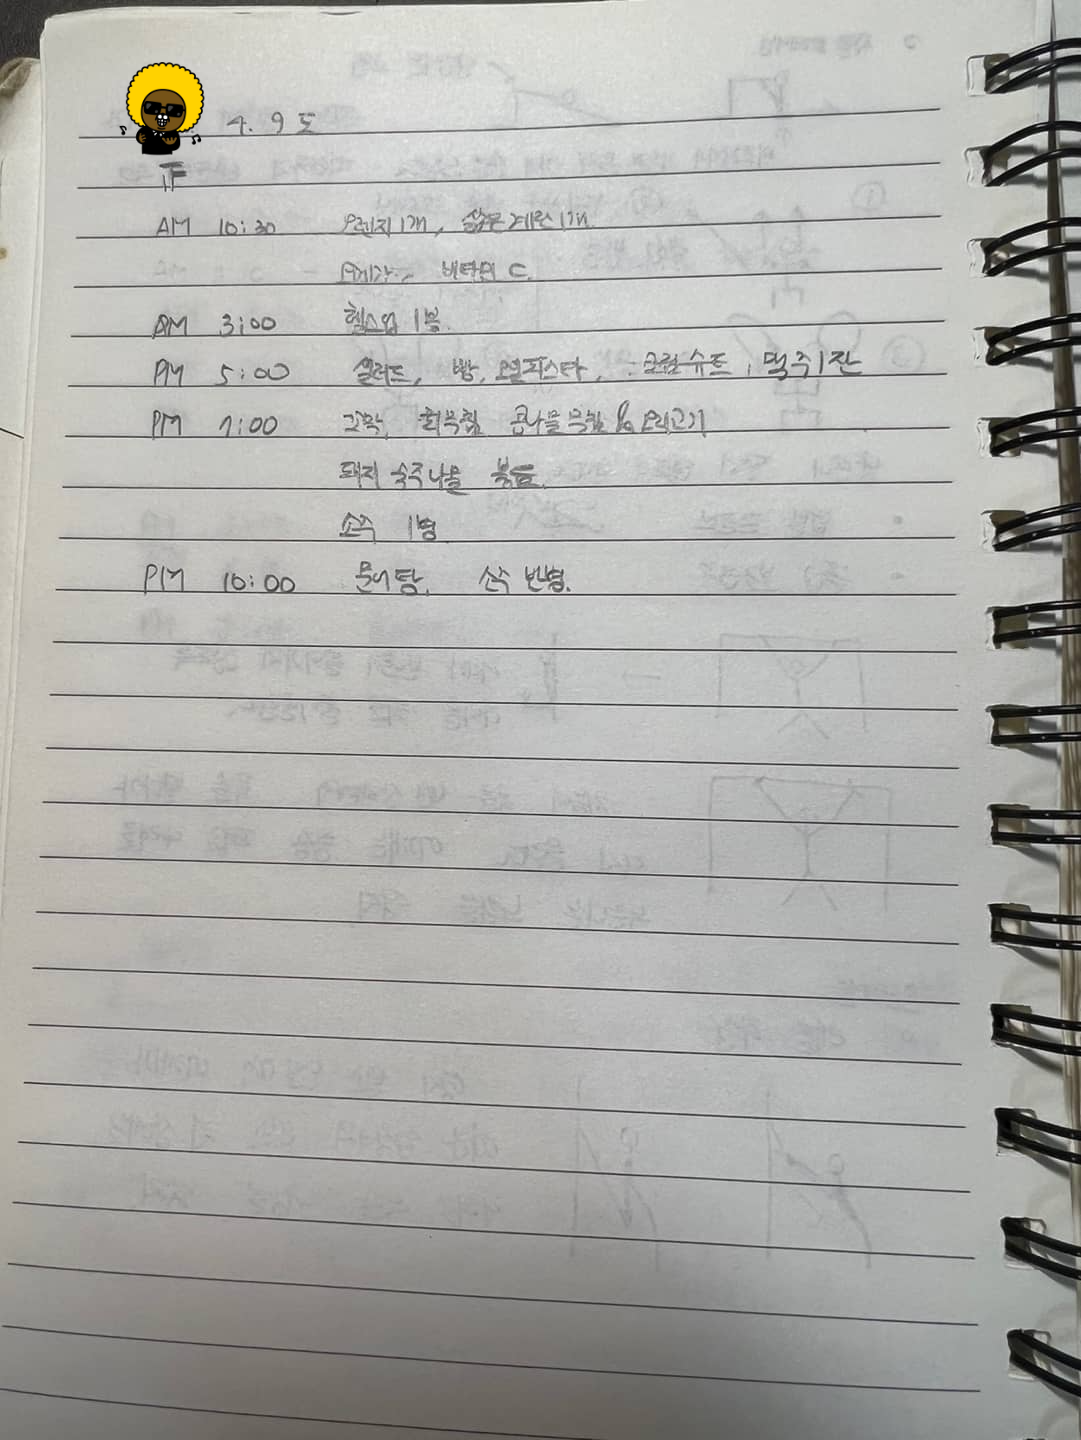 4. 9 토
AM 10:30 오렌지 1개, 삶은계란 1개.
오메가, 비타민 C.
AM 3:00 헬스업 1봉.
PM 5:00 샐러드, 빵, 오일파스타, 크림슈트, 맥주 1잔
PM 7:00 꼬막, 회무침 콩나물무침 & 오리고기
돼지 숙주나물 볶음.
소주 1병
PM 10:00 문어탕, 소주 반병.